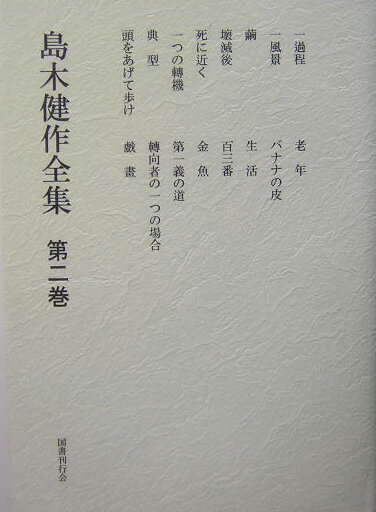 一過程
一風景
繭
壊滅後
死に近く
一つの轉機
典型
頭をあげて歩け
老年
バナナの皮
生活
百三番
金魚
第一義の道
轉向者の一つの場合
戯畫
島木健作全集 第二巻
国書刊行会